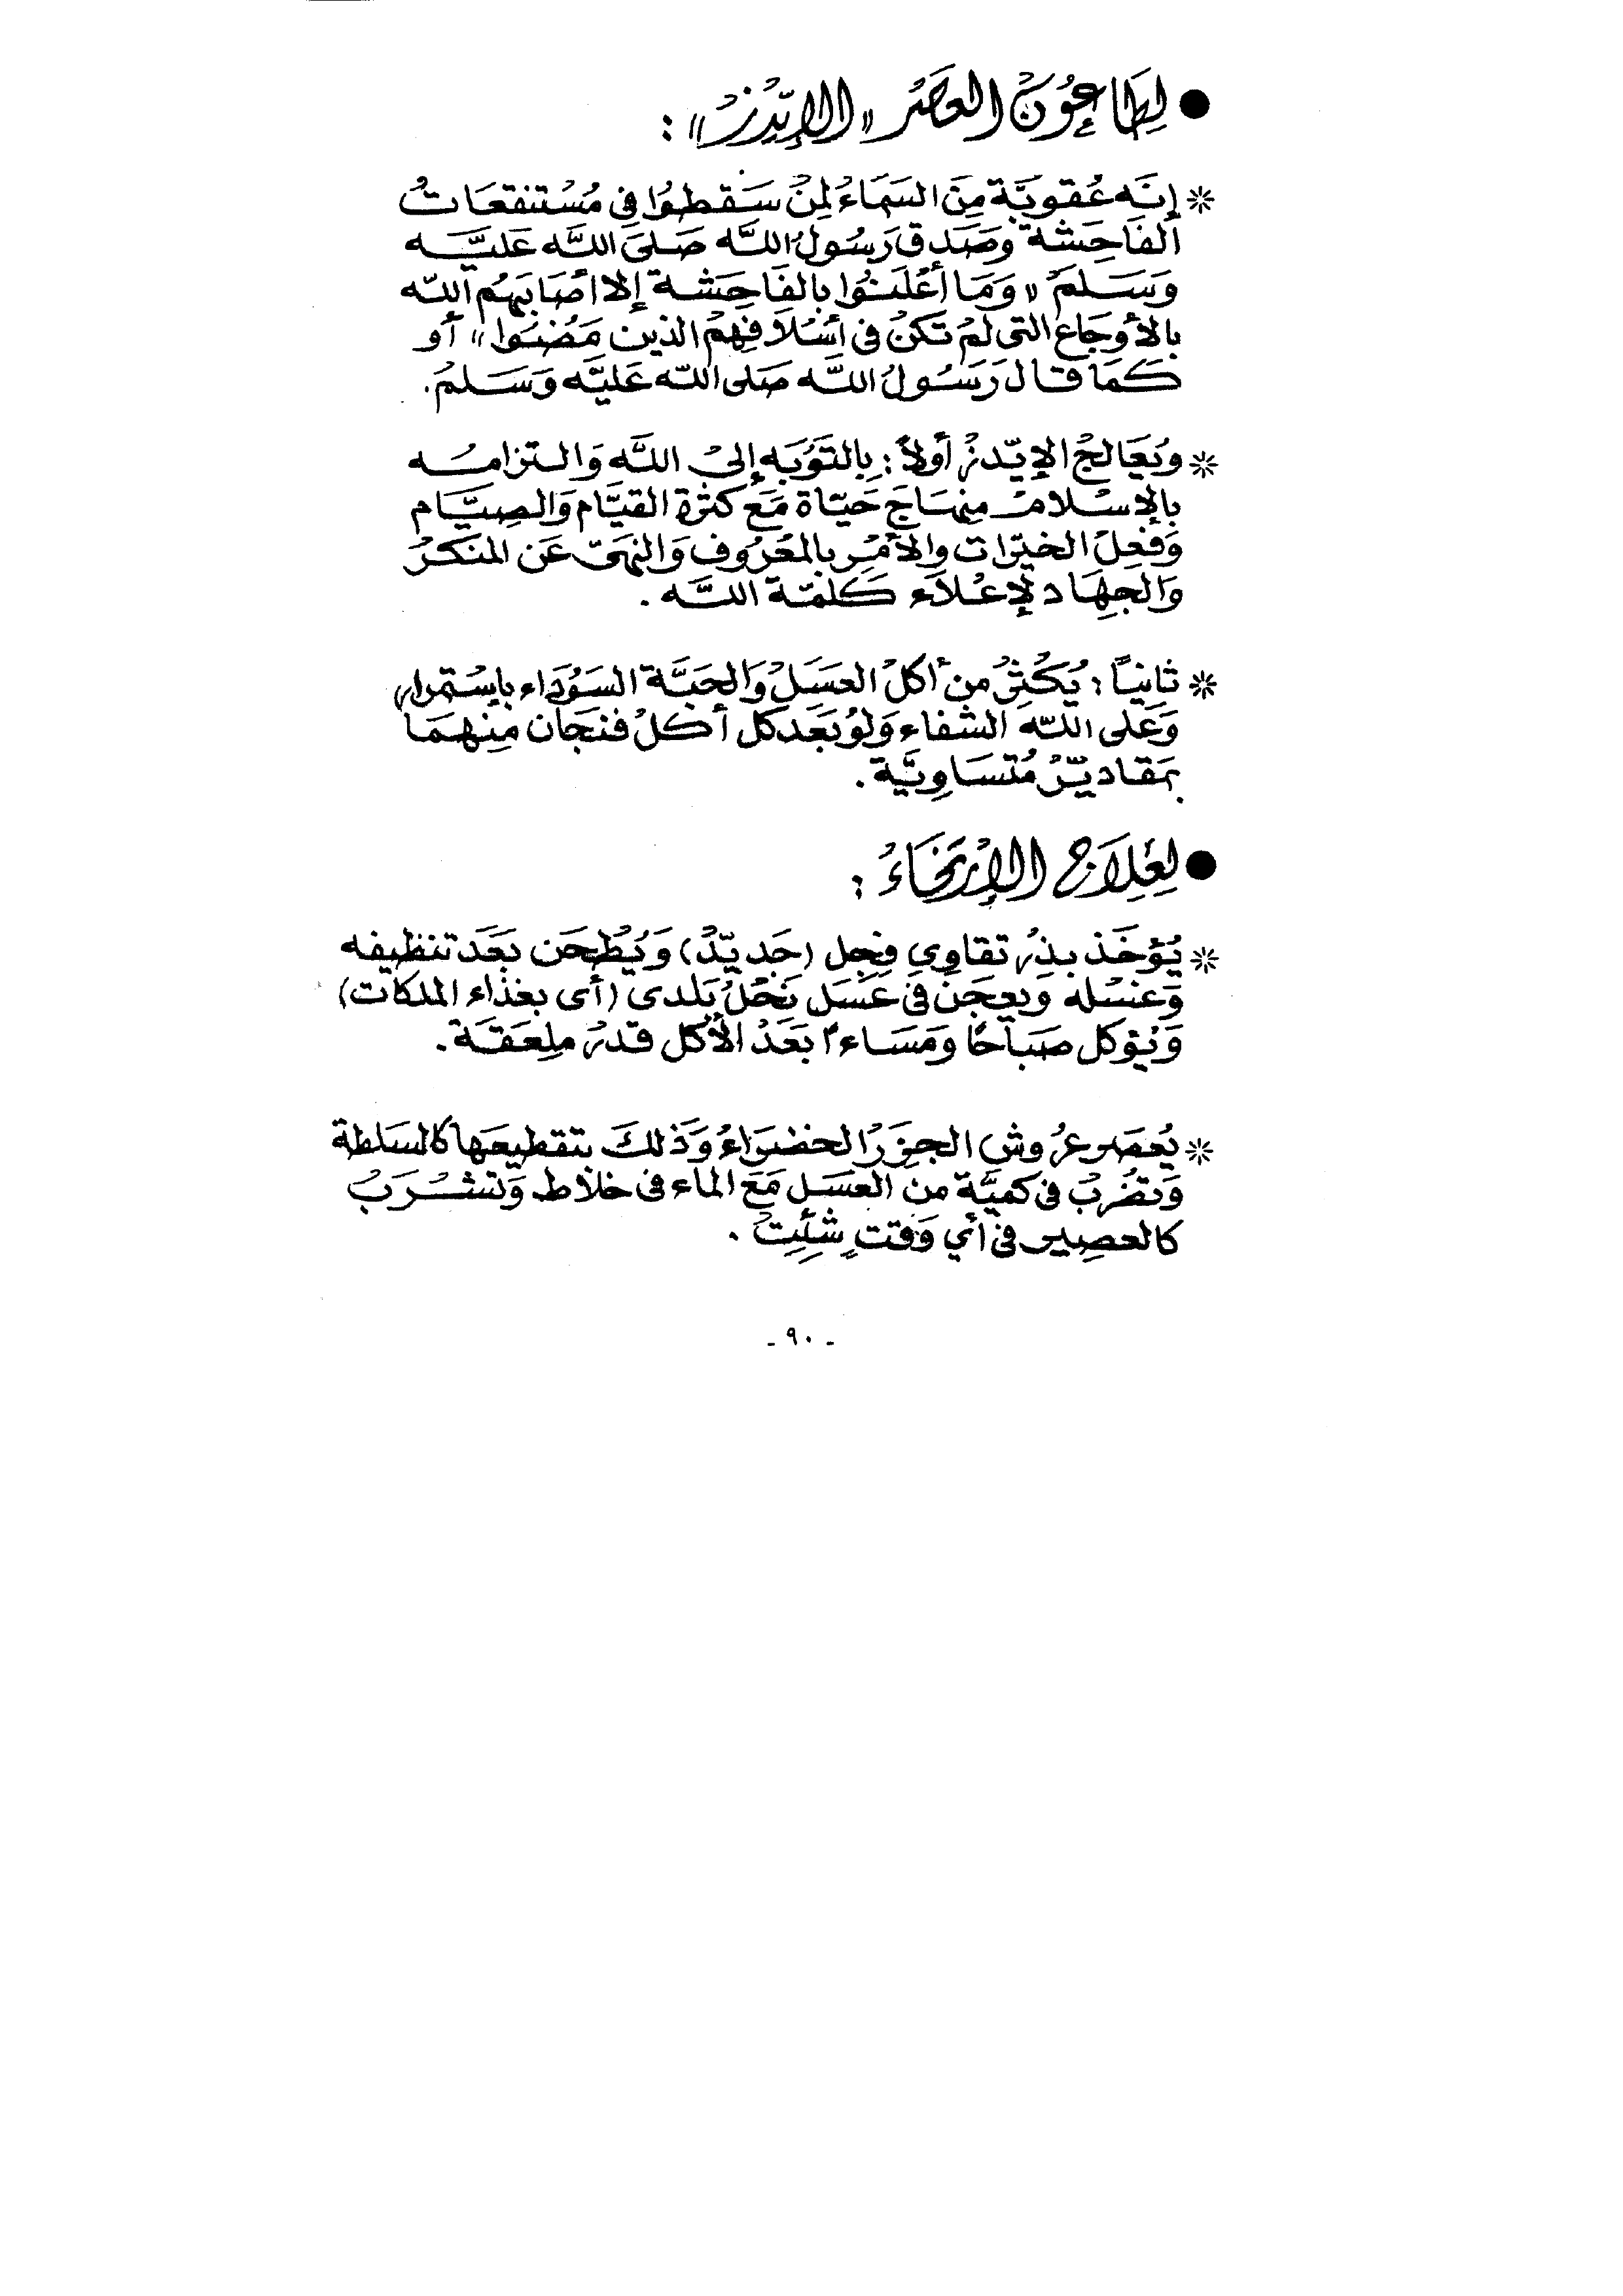 ● لطاعون العصر «الإيدز» :
* إنه عقوبة من السماء لمن سقطوا في مستنقعات
الفاحشة وصدق رسول الله صلى الله عليه
وسلم «وما أعلنوا بالفاحشة إلا أصابهم الله
بالأوجاع التي لم تكن في أسلافهم الذين مضوا» أو
كما قال رسول الله صلى الله عليه وسلم.
* ويعالج الإيدز أولاً : بالتوبه إلى الله والتزامه
بالإسلام منهاج حياة مع كثرة القيام والصيام
وفعل الخيرات والأمر بالمعروف والنهي عن المنكر
والجهاد لإعلاء كلمة الله .
* ثانياً : يكثر من أكل العسل والحبة السوداء باستمرار
وعلى الله الشفاء ولو بعد كل أكل فنجان منهما
بمقادير متساوية .
● لعلاج الإرتخاء :
* يؤخذ بذر تقاوي فجل (جديد) ويطحن بعد تنظيفه
وغسله ويعجن في عسل نحل بلدى (أى بغذاء الملكات)
ويؤكل صباحًا ومساءً بعد الأكل قدر ملعقة .
* يعصر عروش الجزر الخضراء وذلك بتقطيعها كالسلطة
وتضرب في كمية من العسل مع الماء في خلاط وتشرب
كالعصير في أي وقت شئت .
- ٩٠ -